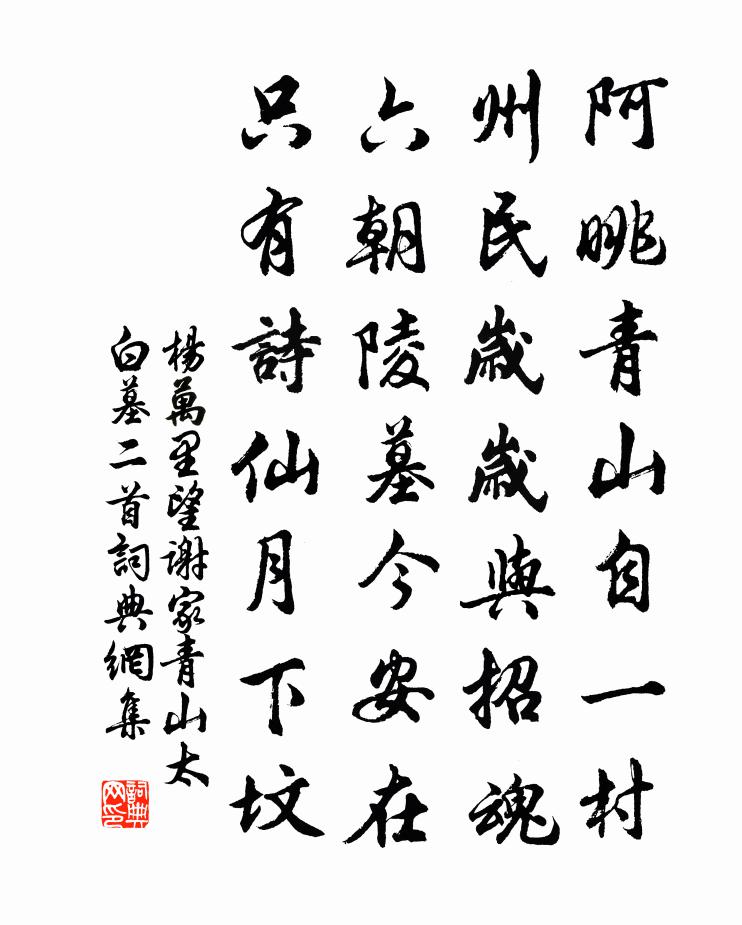 阿眺青山自一村
州民歲歲與招魂
六朝陵墓今安在
只有詩仙月下坟
楊萬里望謝家青山太
白墓二首詞典網集
詞典
网印